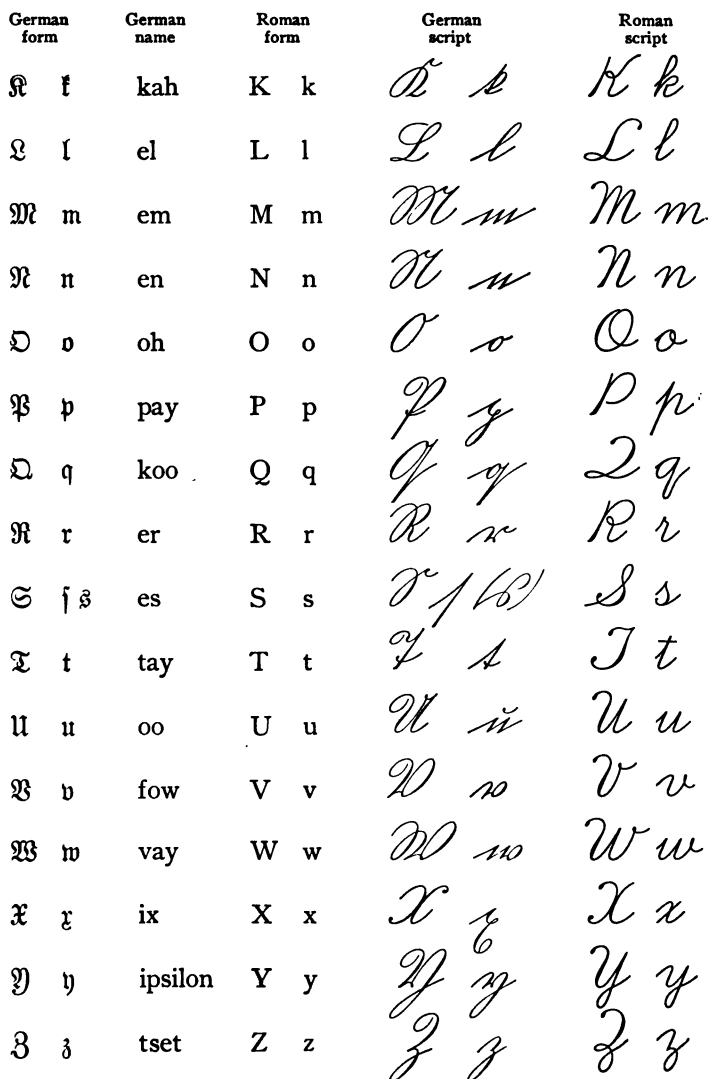 German form German name Roman form German script Roman script
K k kah K k K k K k
L l el L l L l L l
M m em M m M m M m
N n en N n N n N n
O o oh O o O o O o
P p pay P p P p P p
Q q koo Q q Q q Q q
R r er R r R r R r
S ſ s es S s S ſ (s) S s
T t tay T t T t T t
U u oo U u U u U u
V v fow V v V v V v
W w vay W w W w W w
X x ix X x X x X x
Y y ipsilon Y y Y y Y y
Z z tset Z z Z z Z z